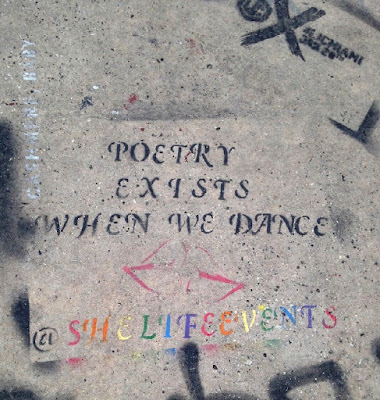 POETRY
EXISTS
WHEN WE DANCE
@SHELIFEEVENTS